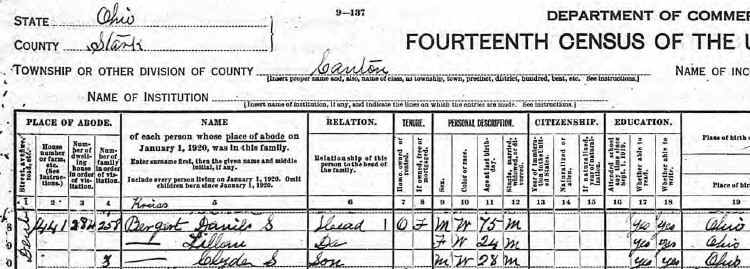 9-137
STATE Ohio
DEPARTMENT OF COMMER
COUNTY Stark
FOURTEENTH CENSUS OF THE U
TOWNSHIP OR OTHER DIVISION OF COUNTY Canton
NAME OF INC
[Insert proper name and, also, name of class, as township, town, precinct, district, hundred, beat, etc. See instructions.]
NAME OF INSTITUTION
[Insert name of institution, if any, and indicate the lines on which the entries are made. See instructions.]
PLACE OF ABODE. NAME RELATION. TENURE. PERSONAL DESCRIPTION. CITIZENSHIP. EDUCATION.
Street, avenue, road, etc.
House number or farm, etc. (See instructions.)
Number of dwelling house in order of visitation.
Number of family in order of visitation.
of each person whose place of abode on January 1, 1920, was in this family.
Enter surname first, then the given name and middle initial, if any.
Include every person living on January 1, 1920. Omit children born since January 1, 1920.
Relationship of this person to the head of the family.
Home owned or rented.
If owned, free or mortgaged.
Sex.
Color or race.
Age at last birthday.
Single, married, widowed, or divorced.
Year of immigration to the United States.
Naturalized or alien.
If naturalized, year of naturalization.
Attended school any time since Sept. 1, 1919.
Whether able to read.
Whether able to write.
Place of birth
1 2 3 4 5 6 7 8 9 10 11 12 13 14 15 16 17 18 19
441 284 258 Bergert Daniel S Head 1 O F M W 75 M yes yes Ohio
— Lillian F W 24 M yes yes Ohio
3 — Clyde S Son M W 28 M yes yes Ohio